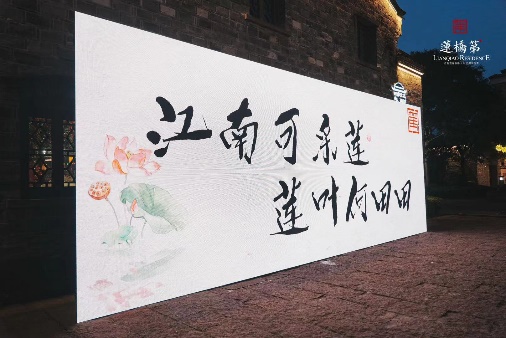 蓮橋第
LIANQIAO RESIDENCE
江南可采莲
莲叶何田田